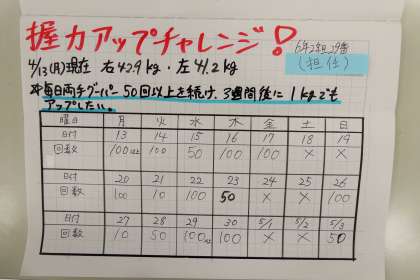 握力アップチャレンジ!
6年2組29番
(担任)
4/13(月)現在 右42.9kg・左41.2kg
*毎日両手グーパー50回以上を続け、3週間後に1kgでも
アップしたい。
曜日 月 火 水 木 金 土 日
日付 13 14 15 16 17 18 19
回数 100 100 50 100 100 × ×
日付 20 21 22 23 24 25 26
回数 100 10 100 50 × × 100
日付 27 28 29 30 5/1 5/2 5/3
回数 10 50 100 100 × × 50